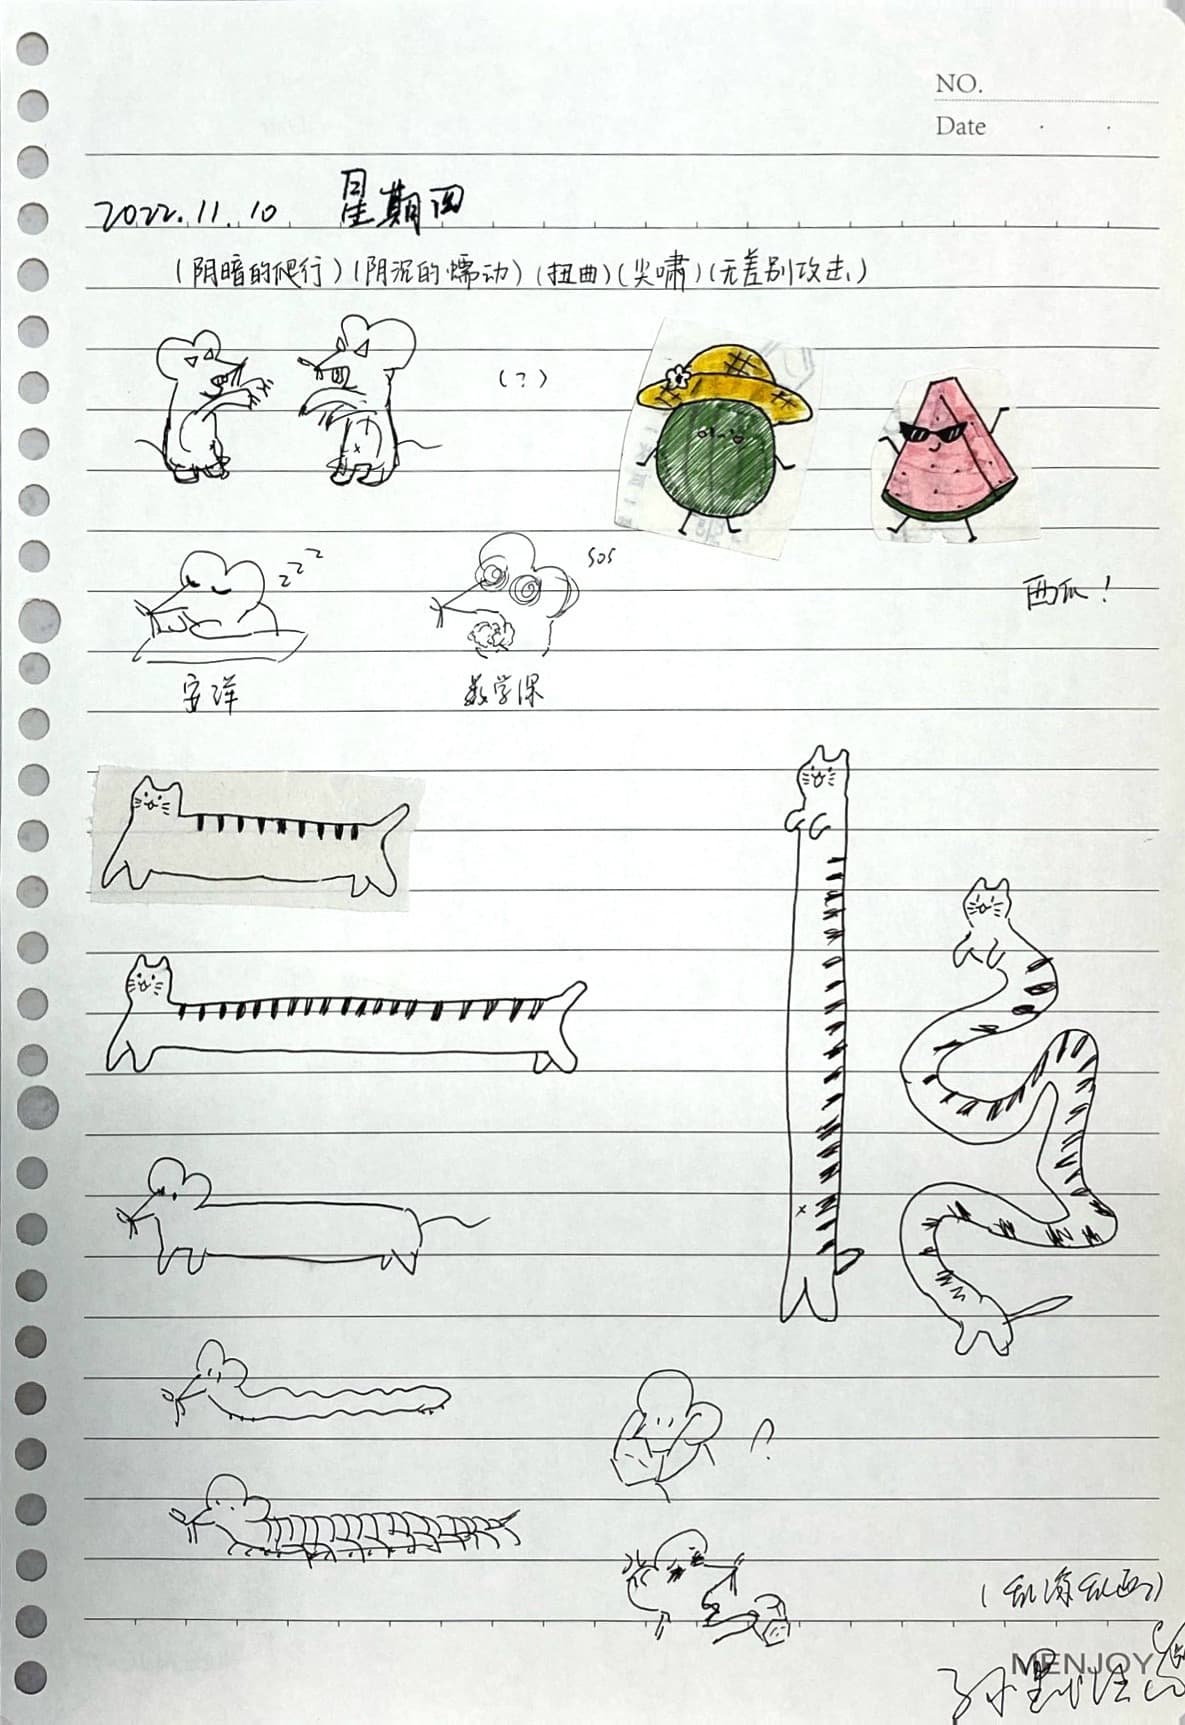 NO.
Date
2022.11.10 星期四
(阴暗的爬行)(阴沉的蠕动)(扭曲)(尖啸)(无差别攻击)
(?)
zzz
sos
西瓜!
数学课
?
MENJOY